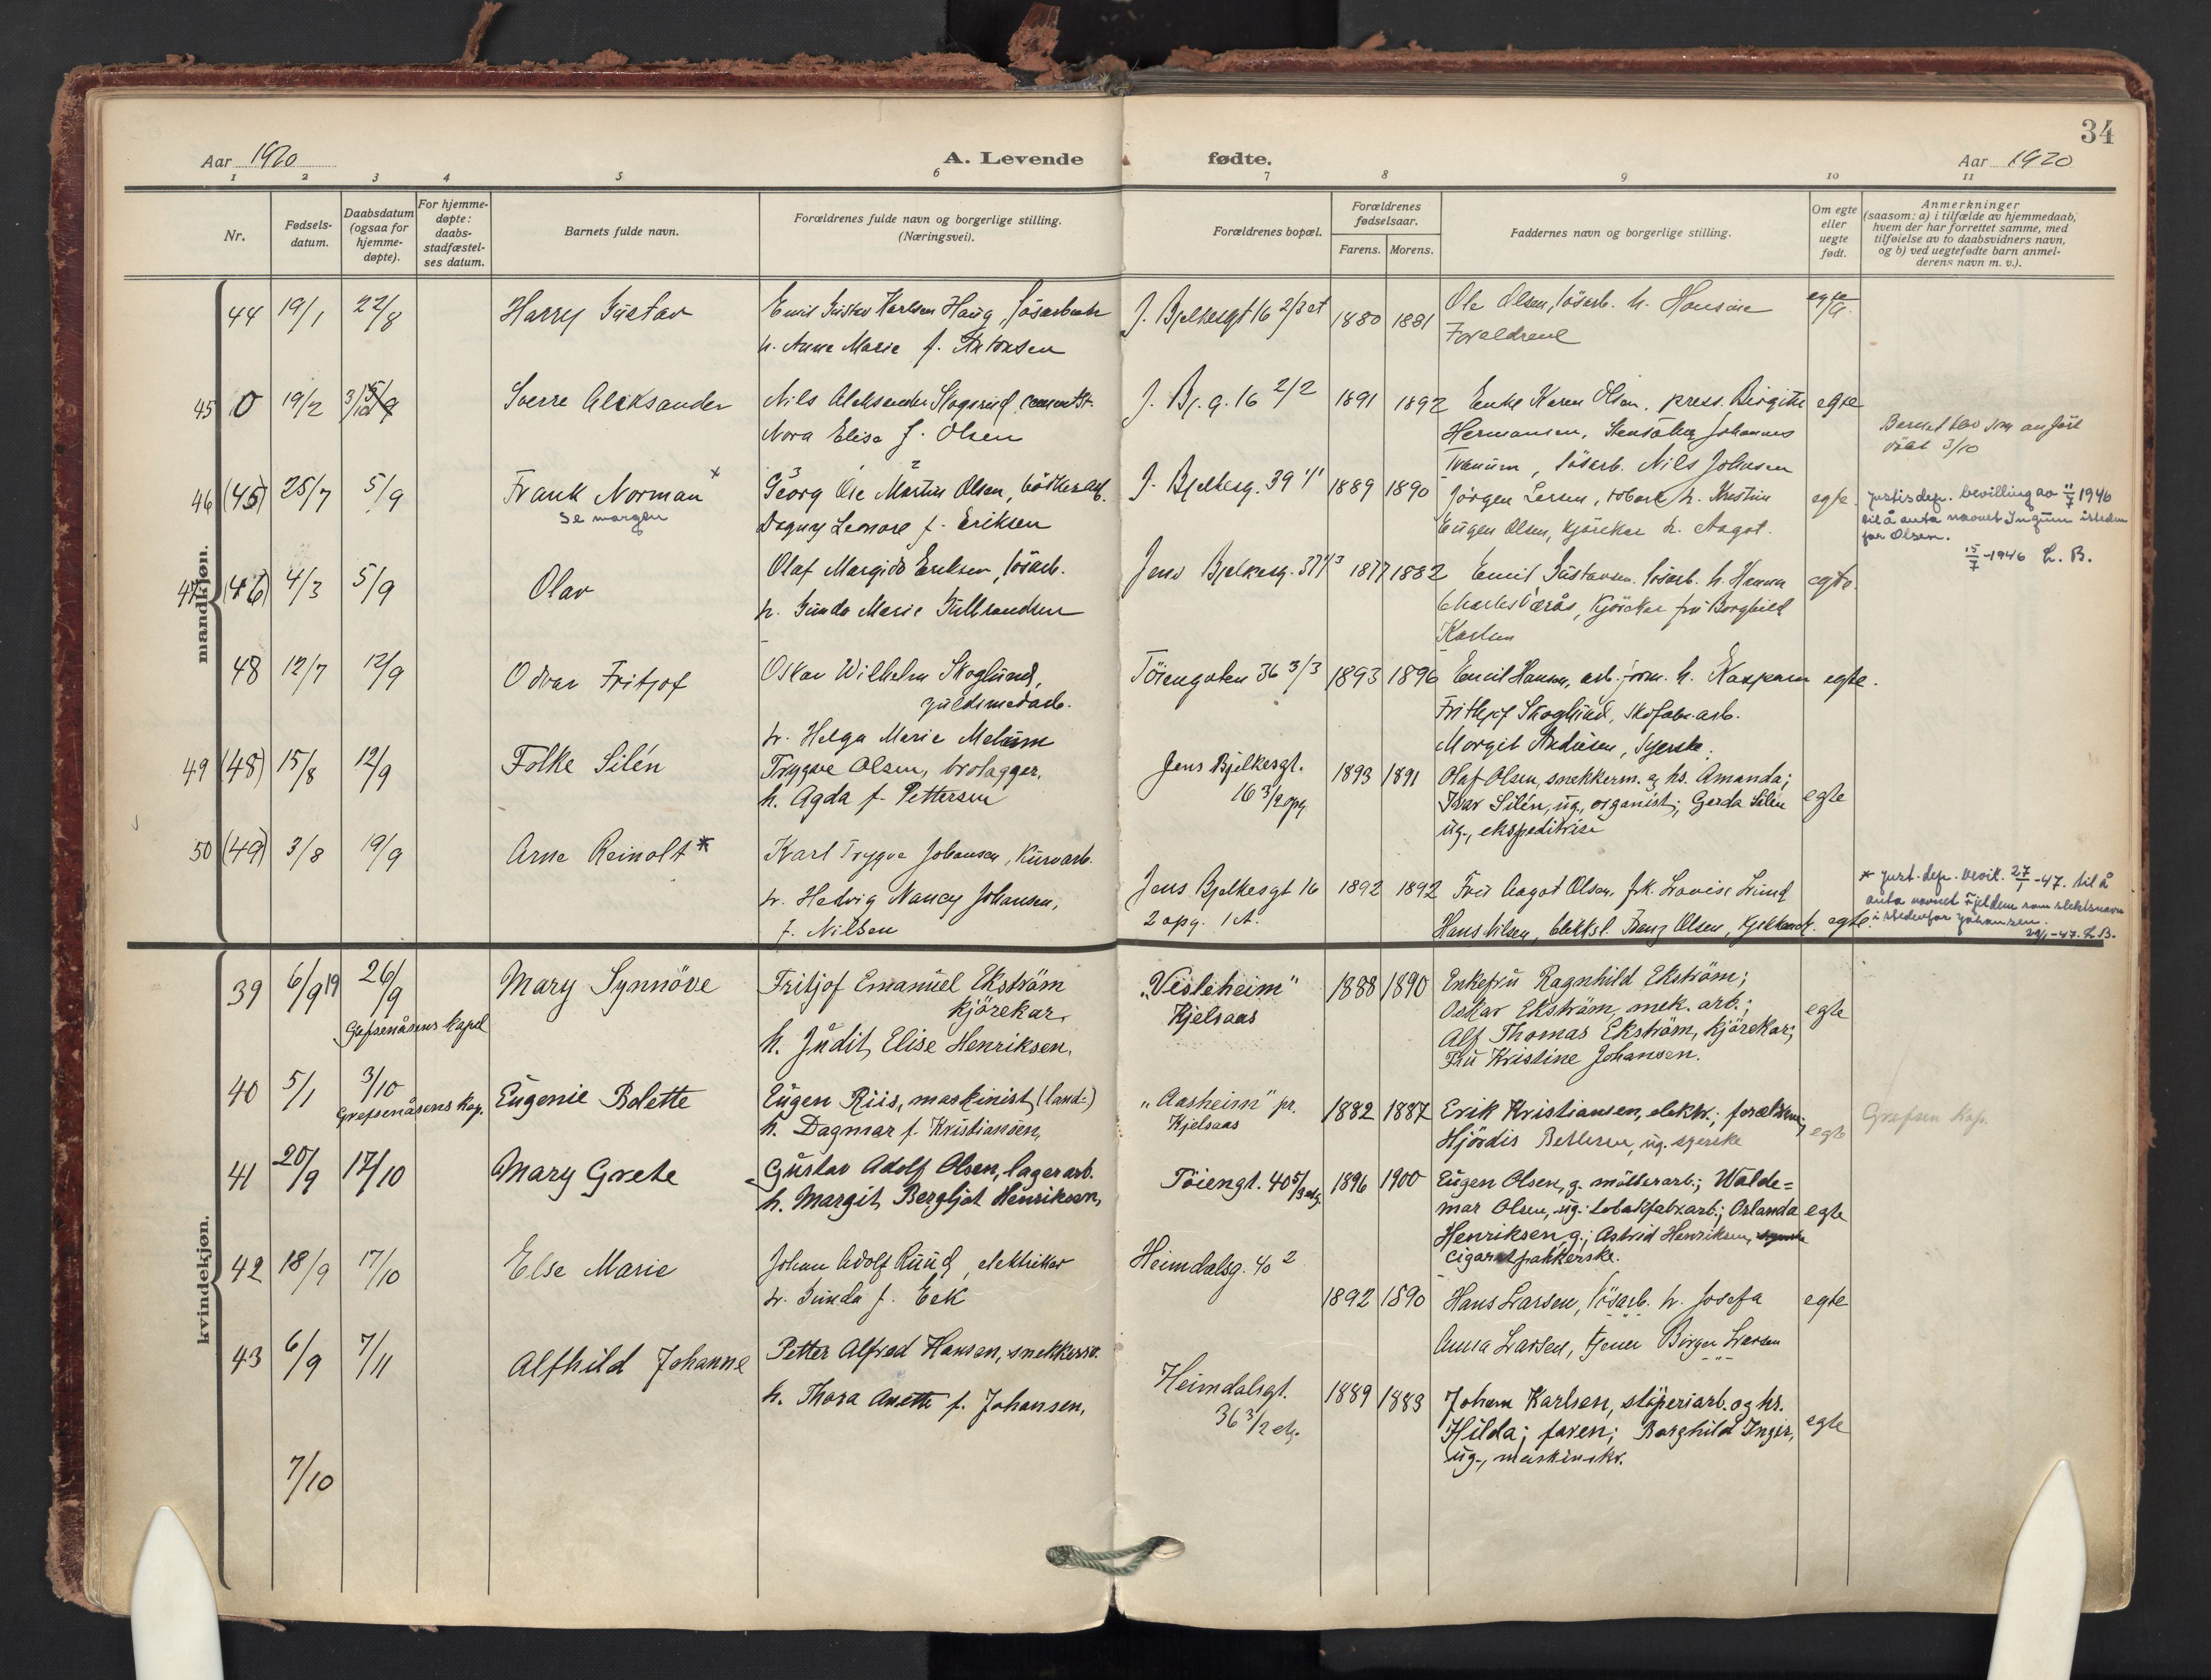 34
Aar 1920
A. Levende fødte.
Aar 1920
1 2 3 4 5 6 7 8 9 10 11
Nr.
Fødsels-
datum.
Daabsdatum
(ogsaa for
hjemme-
døpte).
For hjemme-
døpte:
daabs-
stadfæstel-
ses datum.
Barnets fulde navn.
Forældrenes fulde navn og borgerlige stilling.
(Næringsvei).
Forældrenes bopæl.
Forældrenes
fødselsaar.
Farens. Morens.
Faddernes navn og borgerlige stilling.
Om egte
eller
uegte
født.
Anmerkninger
(saasom: a) i tilfælde av hjemmedaab,
hvem der har forrettet samme, med
tilføielse av to daabsvidners navn,
og b) ved uegtefødte barn anmel-
derens navn m. v.).
mandkjøn.
44 19/1 22/8 Harry Gustav
Emil Gustav Karlsen Haug, lösarb
h. Anne Marie f. Antonsen
J. Bjelkesgt 16 2/3 et 1880 1881
Ole Olsen, lösarb. h. Hansine
Foreldrene
egte
45 0 19/2 3/10 Sverre Aleksander
Nils Aleksander Skogsrud, cementst.
Nora Elise f. Olsen
J. Bj. g. 16 2/2 1891 1892
Enke Karen Olsen. press. Birgitte
Hermansen, Johannes
lösarb. Nils Johnsen
egte
Barnet blev som anfört
döbt 3/10
46 (45) 25/7 5/9 Frank Norman x
se margen
Georg Ole Martin Olsen, bötkerarb.
Dagny Leonore f. Eriksen
J. Bjelkesg. 39 1/1 1889 1890
Jörgen Larsen, h. Kristine
Eugen Olsen, kjörekar h. Aagot.
egte.
Justisdep. bevilling av 11/7 1946
til å anta navnet Ingum isteden
for Olsen.
15/7-1946 L. B.
47 (46) 4/3 5/9 Olav
Olaf Margido Eriksen, lösarb.
h. Gunda Marie Gulbrandsen
Jens Bjelkesg. 37 1/3 1877 1882
Emil Gustavsen. lösarb. h. Hanna
Charles kjörekar fru Borghild
Karlsen
egte.
48 12/7 12/9 Odvar Fritjof
Oskar Wilhelm Skoglund,
guldsmedarb.
h. Helga Marie Melum
Töiengaten 36 3/3 1893 1896
Emil Hansen, arb. form. h. Kaspara
Frithjof Skoglund, skofabr.arb.
Margit Andresen, syerske.
egte.
49 (48) 15/8 12/9 Folke Silén
Trygve Olsen, brolægger,
h. Agda f. Pettersen
Jens Bjelkesgt.
16 3/2 opg. 1893 1891
Olaf Olsen, snekkerm. og hs. Amanda;
Ivar Silén, ug., organist; Gerda Silén
ug., ekspeditrise
egte
50 (49) 3/8 19/9 Arne Reinolt *
Karl Trygve Johansen, kurvarb.
h. Hedvig Nancy Johansen,
f. Nilsen
Jens Bjelkesgt 16
2 opg. 1 et. 1892 1892
Fru Aagot Olsen, frk. Lovise Lund
Hans Nilsen, Olsen,
egte.
* Just. dep. bevil. 27/1-47. til å
anta navnet Fjeldem som slektsnavn
istedenfor Johansen.
29/1-47. L.B.
kvindekjøn.
39 6/9 19 26/9 Mary Synnöve
Grefsenåsens kapel
Fritjof Emanuel Ekström
kjörekar,
h. Judit Elise Henriksen,
"Visleheim"
Kjelsaas 1888 1890
Enkefru Ragnhild Ekström;
Oskar Ekström, mek. arb.;
Alf Thomas Ekström, kjörekar;
Fru Kristine Johansen.
egte
40 5/1 3/10 Eugenie Bolette
Grefsenåsens kap.
Eugen Riis, maskinist (land-)
h. Dagmar f. Kristiansen,
"Aasheim" pr.
Kjelsaas 1882 1887
Erik Kristiansen, elektr.; forældrene;
Hjördis Pettersen, ug. syerske
egte
Grefsen kap.
41 20/9 17/10 Mary Grete
Gustav Adolf Olsen, lagerarb.
h. Margit Bergljot Henriksen,
Töiengt. 40 5/3 etg. 1896 1900
Eugen Olsen, g. möllerarb.; Walde=
mar Olsen, ug. tobakfabr.arb.; Orlanda
Henriksen, g.; Astrid Henriksen, syerske
cigaretpakkerske.
egte
42 18/9 17/10 Else Marie
Johan Adolf Ruud, elektriker
h. Gunda f. Eek
Heimdalsg. 40 2
1892 1890
Hans Larsen, lösarb. h. Josefa
Anna Larsen, tjener Birger Larsen
egte
43 6/9 7/11 Alfhild Johanne
Petter Alfred Hansen, snekkersv.
h. Thora Anette f. Johansen,
Heimdalsgt.
36 3/2 etg. 1889 1883
Johan Karlsen, stöperiarb. og hs.
Hilda; faren; Borghild Inger,
ug., maskinskr.
egte
7/10